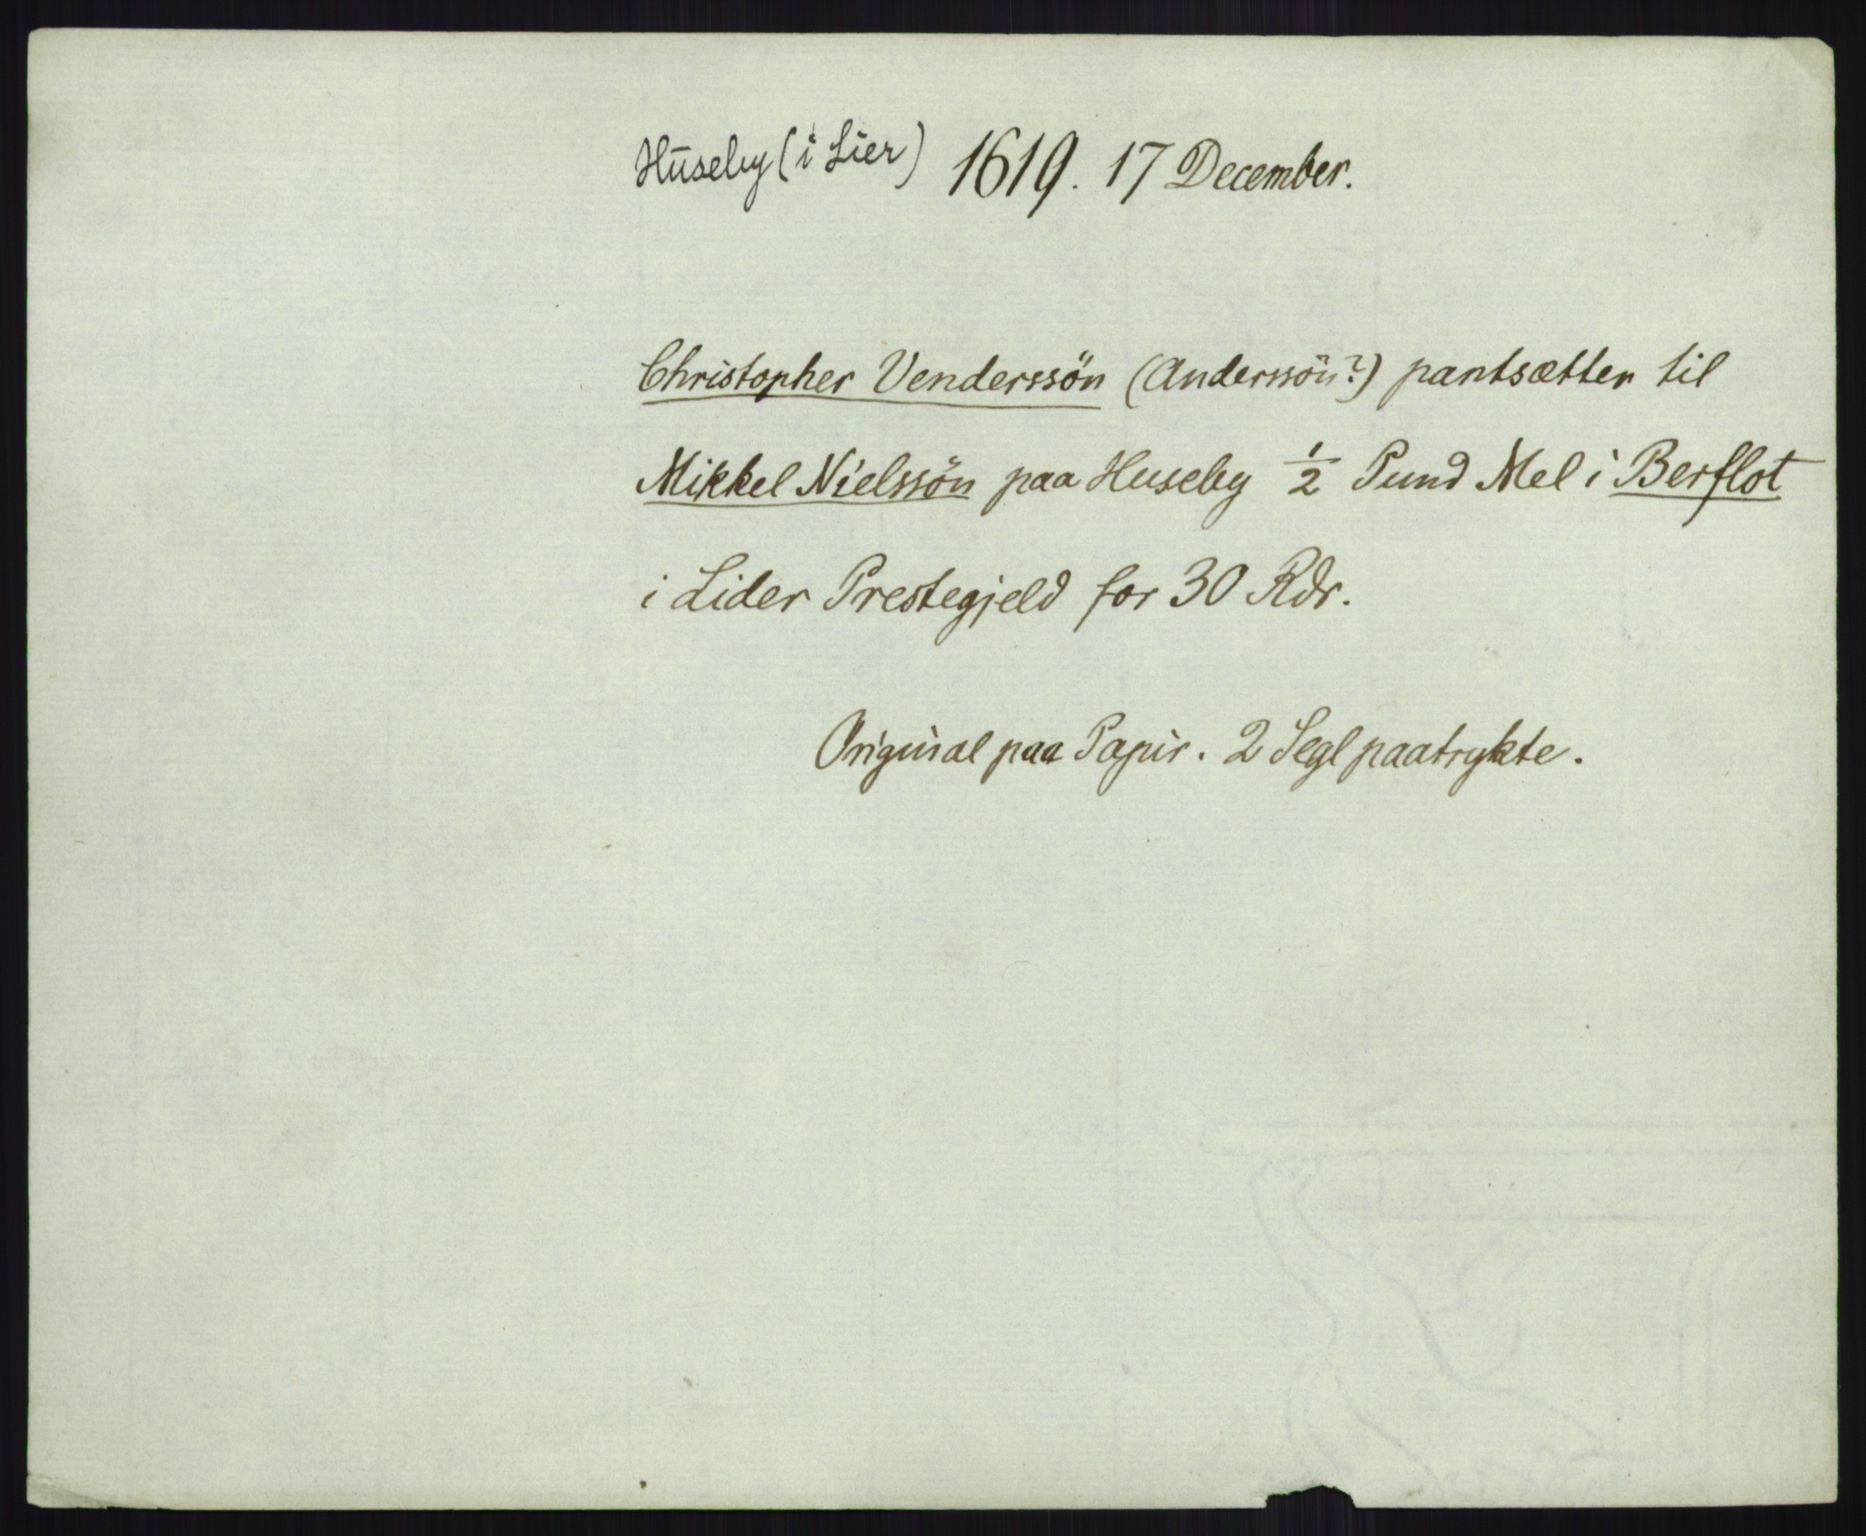 Huseby (i Lier) 1619. 17 December.
Christopher Venderssön (Anderssön?) pantsætter til
Mikkel Nielssön paa Huseby ½ Pund Mel i Berflot
i Lider Prestegjeld for 30 Rdr.
Original paa Papir. 2 Segl paatrykte.